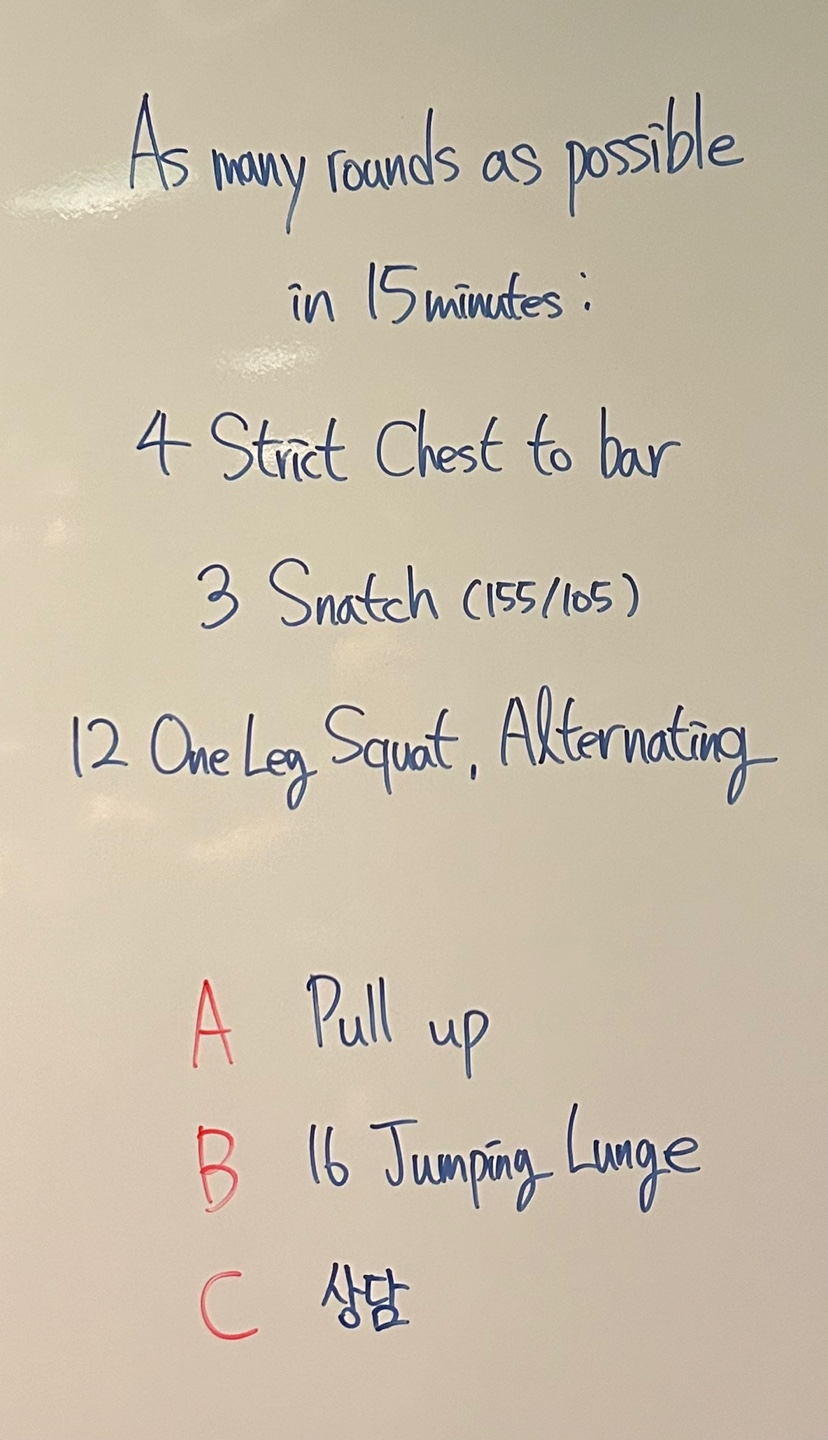 As many rounds as possible
in 15 minutes :
4 Strict Chest to bar
3 Snatch (155/105)
12 One Leg Squat, Alternating
A Pull up
B 16 Jumping Lunge
C 상담